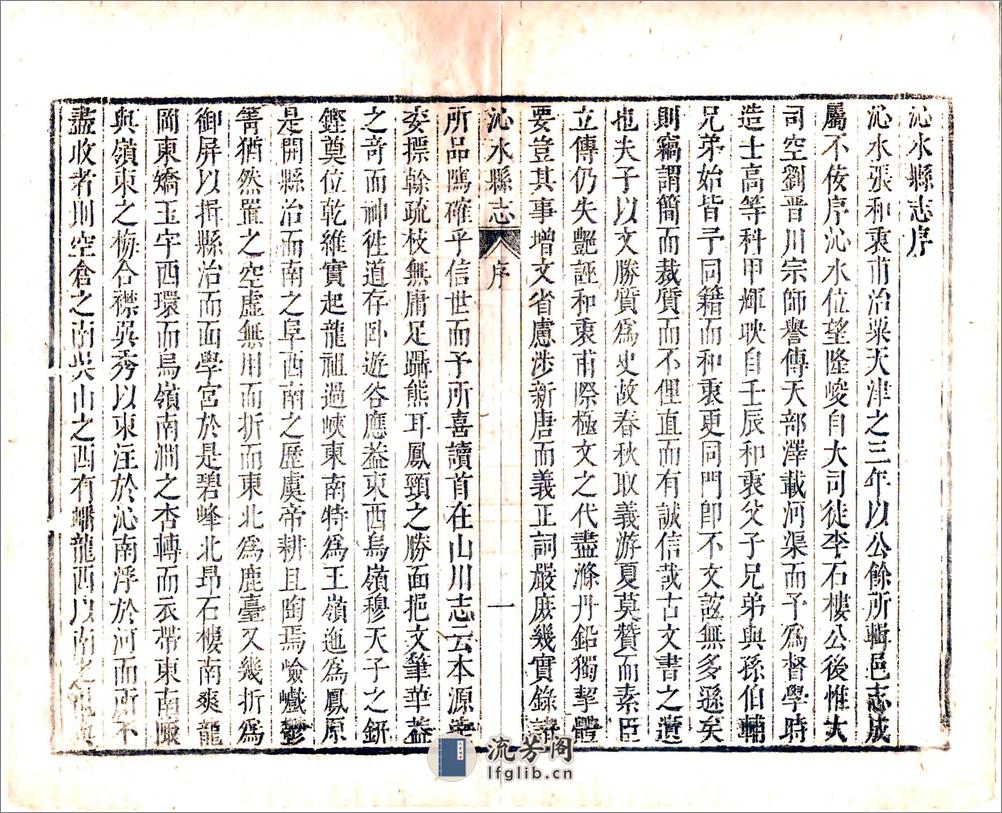 沁水縣志序
沁水張和衷甫治粟天津之三年以公餘所輯邑志成
屬不佞序沁水位望隆峻自大司徒李石樓公後惟大
司空劉晋川宗師譽傳天部澤載河渠而予為督學時
造士高等科甲輝映自壬辰和衷父子兄弟與孫伯輔
兄弟始皆予同籍而和衷更同門即不文誼無多遜矣
則竊謂簡而裁質而不俚直而有誠信哉古文書之遺
也夫子以文勝質為史故春秋取義游夏莫贊而素臣
立傳仍失艷誣和衷甫際極文之代盡滌丹鉛獨挈體
要豈其事增文省慮涉新唐而義正詞嚴庶幾實錄諸
沁水縣志
序
一
所品隲確乎信世而予所喜讀首在山川志云本源
委標幹疏枝無庸足躡熊耳鳳頸之勝面挹文筆華蓋
之奇而神徃道存卧遊谷應葢東西烏嶺穆天子之鈃
鏗奠位乾維實起龍祖過峽東南特為王嶺迤為鳳原
是開縣治而南之阜西南之歷虞帝耕且陶焉嶮巇鬱
窅猶然置之空虛無用而折而東北為鹿臺又幾折為
御屏以揖縣治而面學宮於是碧峰北昂石樓南爽龍
岡東嬌玉字西環而烏嶺南澗之杏轉而衣帶東南
與嶺東之梅合襟吳秀以東注於沁南浮於河而所不
盡收者則空倉之南吳山之西有蟠龍西以南之